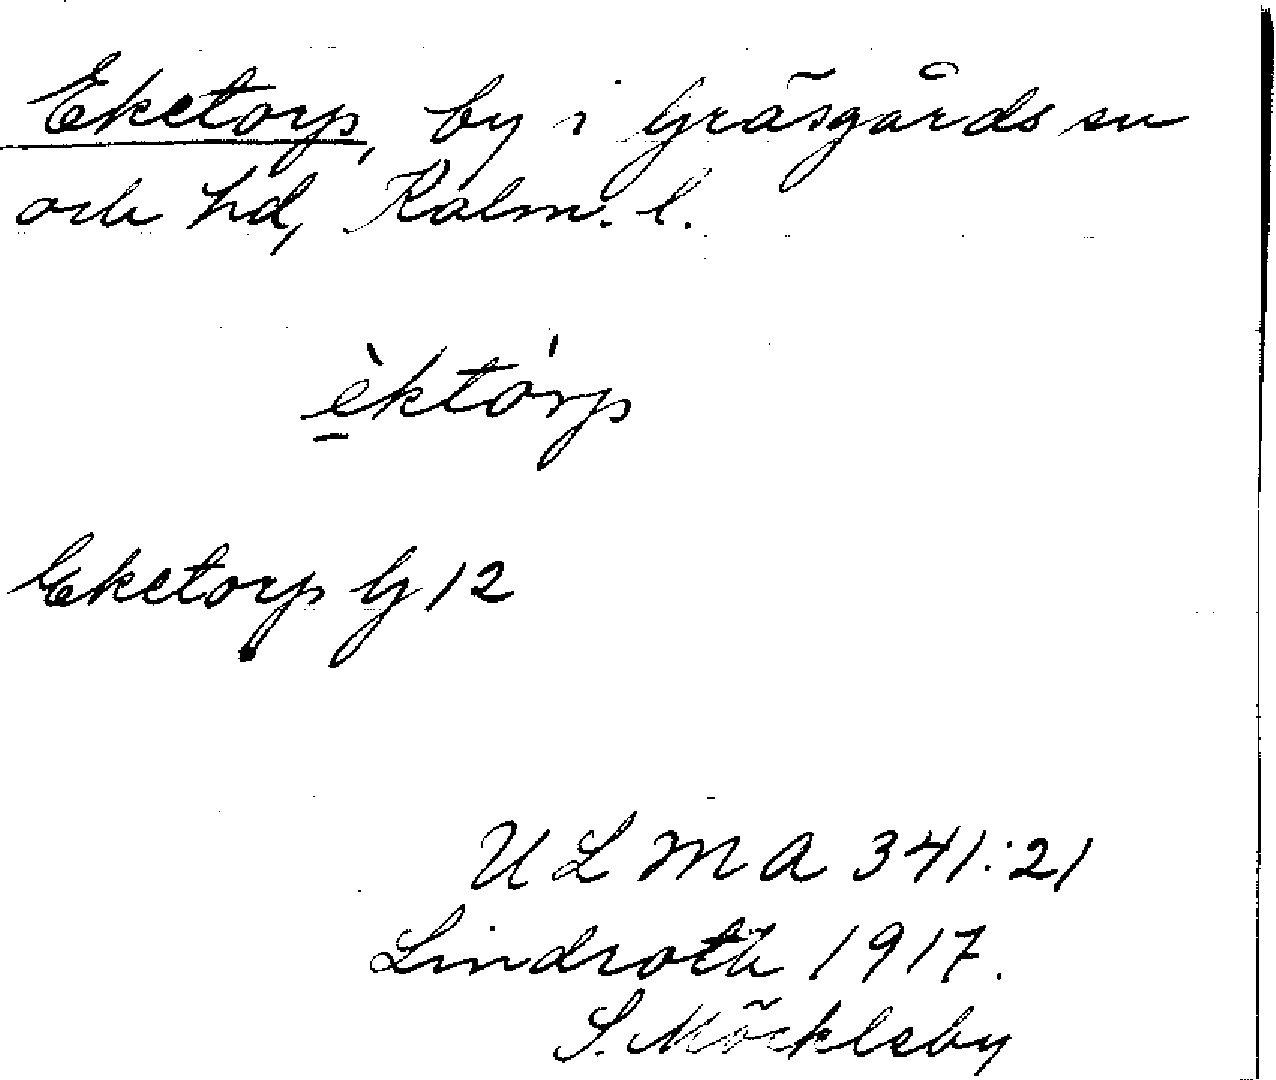 Eketorp, by i Gräsgårds sn
och hd, Kalm. l.
è̱którp
Eketorp G 12
ULMA 341:21
Lindroth 1917.
S. Möckleby